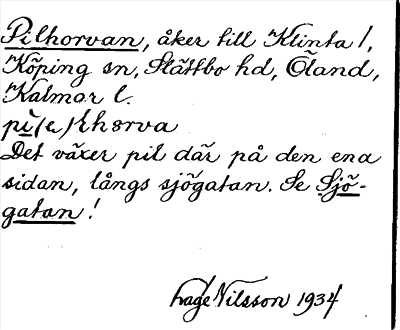 Pilhorvan, åker till Klinta 1,
Köping sn, Slättbo hd, Öland,
Kalmar l.
pi/(e)/l:horva
Det växer pil där på den ena
sidan, långs sjögatan. Se Sjö-
gatan!
hage Nilsson 1934